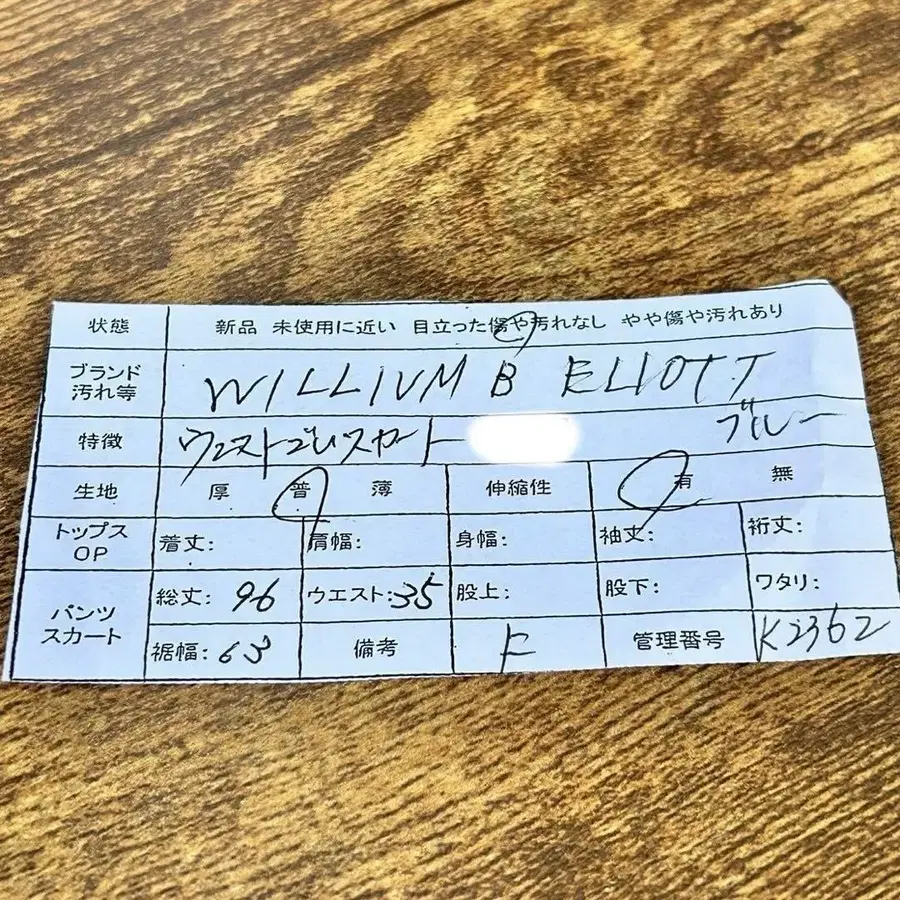 状態 新品 未使用に近い 目立った傷や汚れなし やや傷や汚れあり
ブランド
汚れ等 WILLIVM B ELIOTT
特徴 ウエストゴムスカート ブルー
生地 厚 普 薄 伸縮性 有 無
トップス
OP 着丈: 肩幅: 身幅: 袖丈: 裄丈:
パンツ
スカート 総丈: 96 ウエスト:35 股上: 股下: ワタリ:
裾幅: 63 備考 F 管理番号 K2362